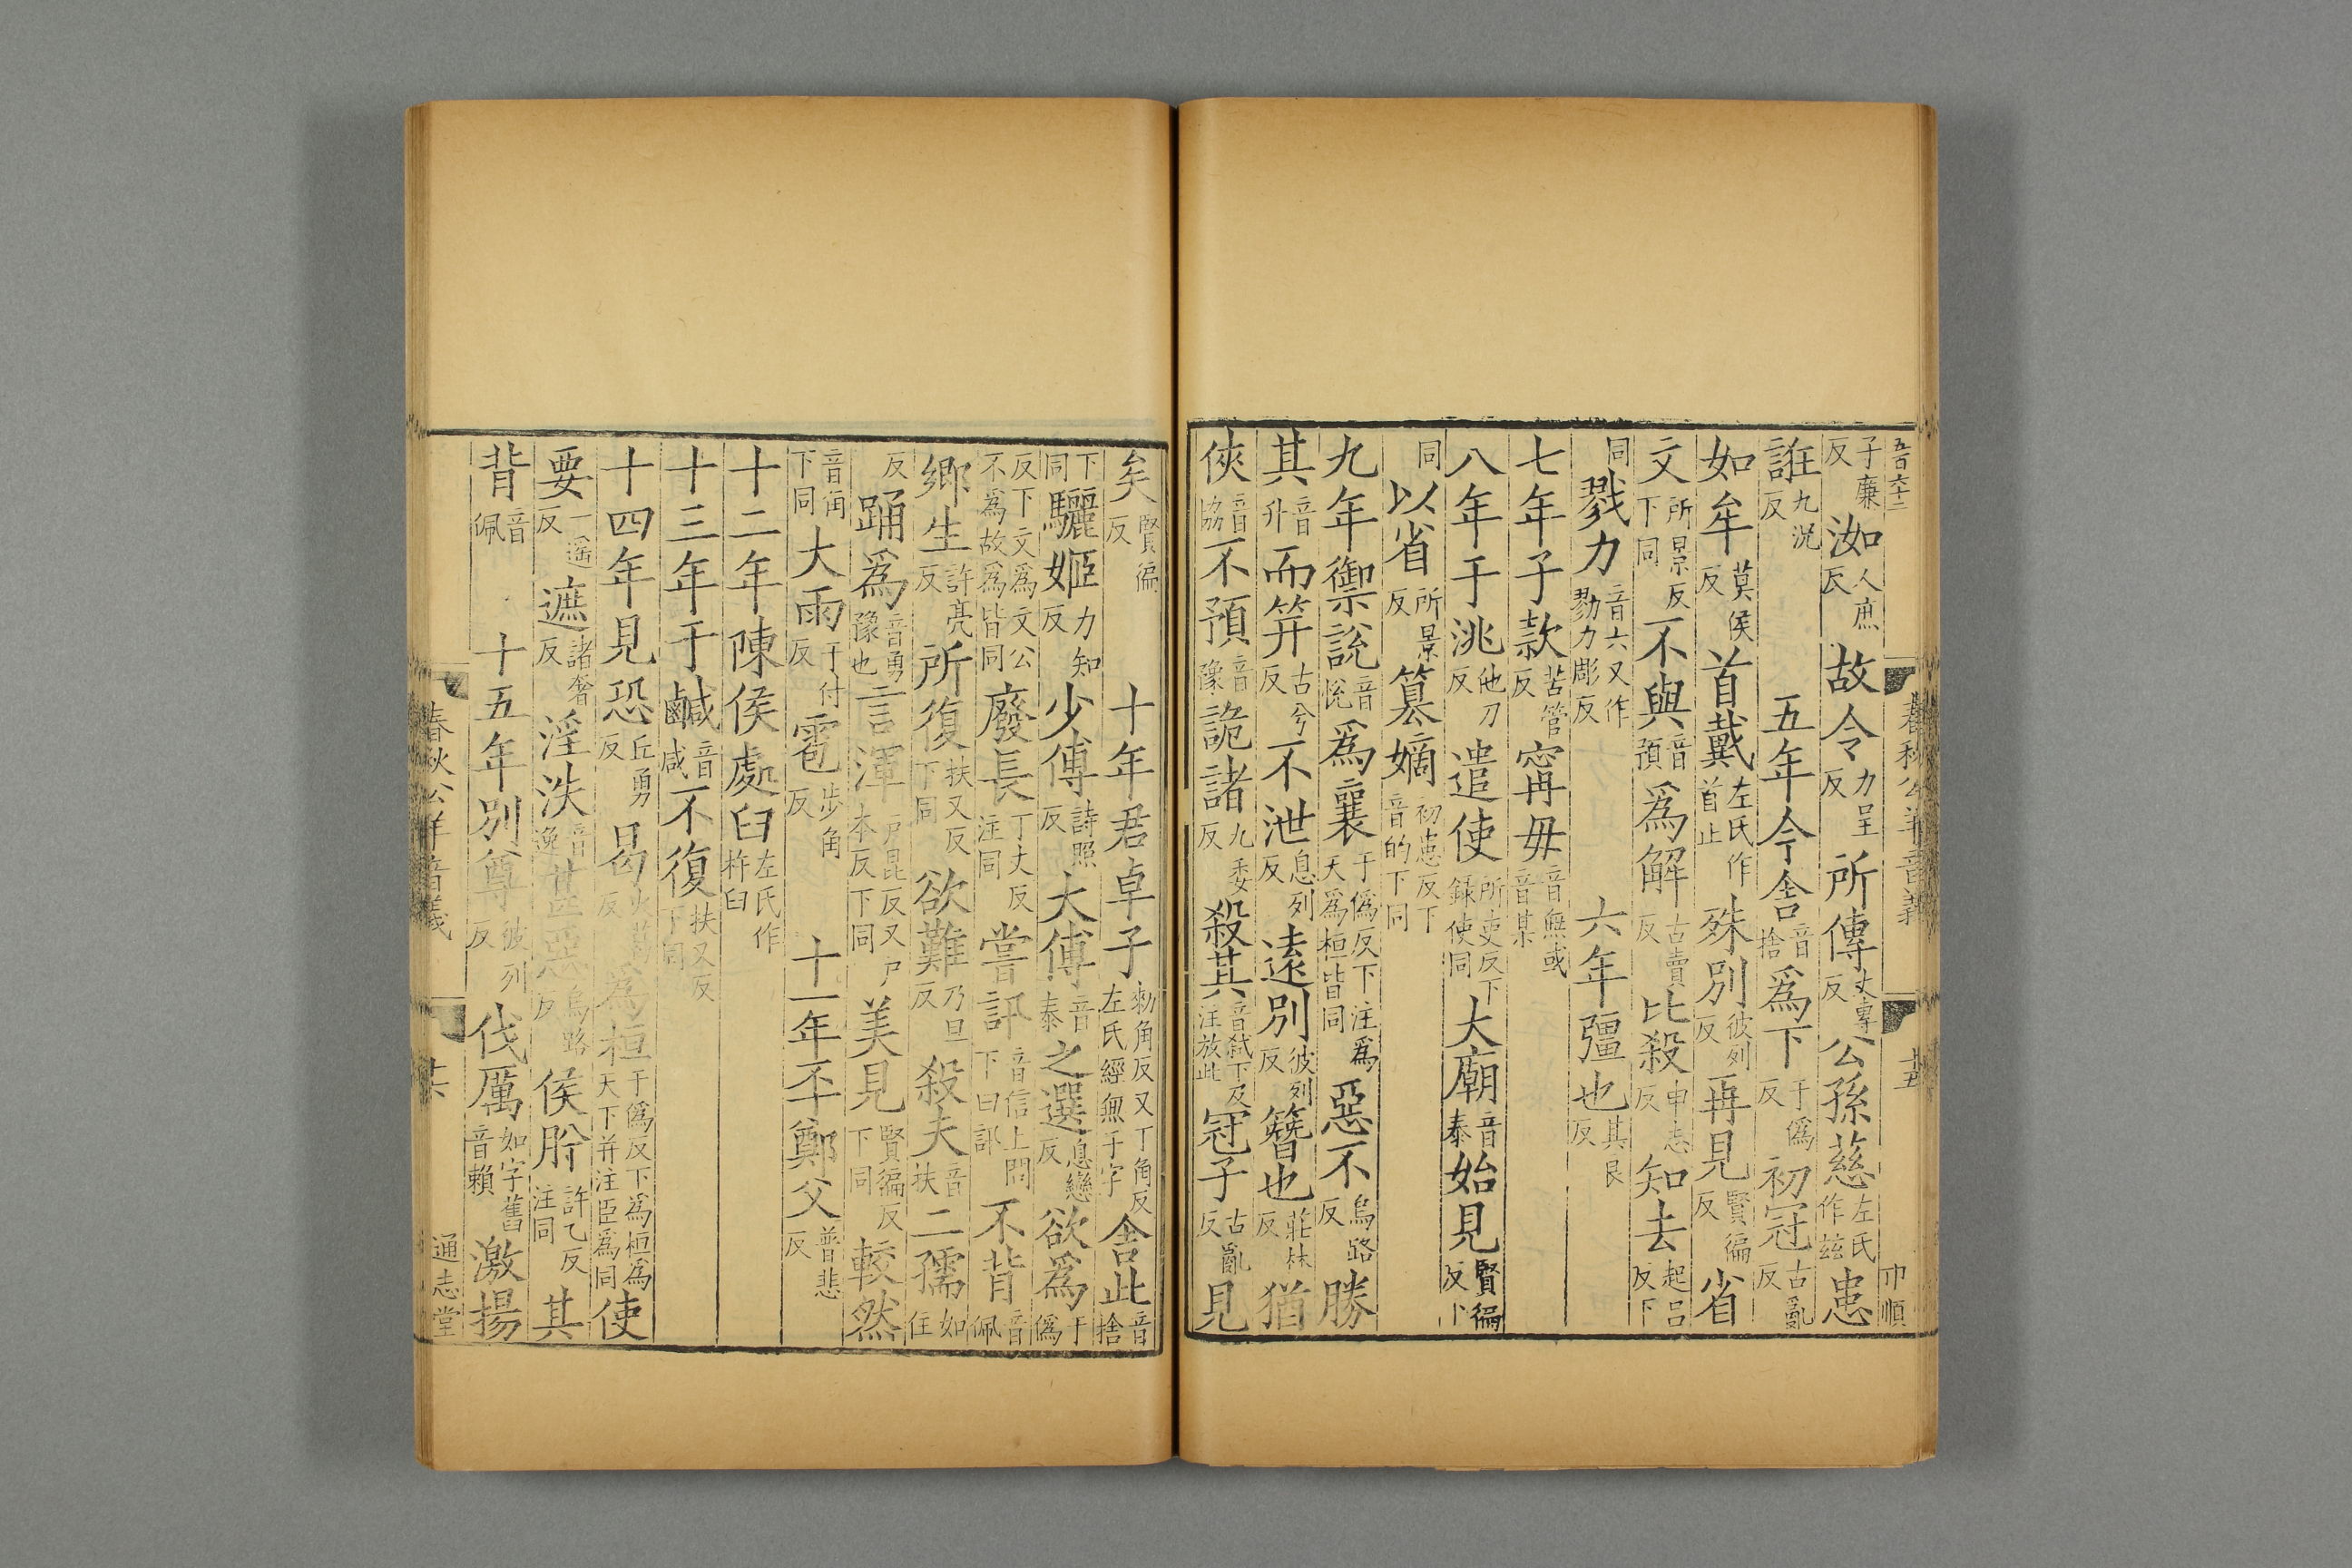 五百六十二 春秋公羊音義 十五 巾順
反子廉 汝反人庶 故令力呈反 所傳丈專反 公孫慈左氏作兹 患
誑九況反 五年令舍音捨 爲下于僞反 初冠古亂反
如牟莫侯反 首戴左氏作首止 殊別彼列反 再見賢徧反 省
文所景反下同 不與音預 爲解古賣反 比殺申志反 知去起吕反下
同 戮力音六又作勠力彫反 六年彊也其良反
七年子款苦管反 甯毋音無或音某
八年于洮他刀反 遣使所吏反下録使同 大廟音泰 始見賢徧反下
同 以省所景反 簒嫡初患反下音的下同
九年禦說音悅 爲襄于僞反下注爲天爲桓皆同 惡不烏路反 勝
其音升 而笄古兮反 不泄息列反 遠別彼列反 簪也莊林反 猶
俠音協 不預音豫 詭諸九委反 殺其音弑下及注放此 冠子古亂反 見
矣賢徧反 十年君卓子勑角反又丁角反左氏經無子字 舍此音捨
下同 驪姬力知反 少傅詩照反 大傅音泰 之選息戀反 欲爲于僞
反下文爲文公不爲故爲皆同 廢長丁丈反注同 嘗訊音信上問下曰訊 不背音佩
鄉生許亮反 所復扶又反下同 欲難乃旦反 殺夫音扶 二孺如住
反 踊爲音勇豫也 言渾戸昆反又戸本反下同 美見賢徧反下同 較然
音角下同 大雨于付反 雹步角反 十一年丕鄭父普悲反
十二年陳侯處臼左氏作杵臼
十三年于鹹音咸 不復扶又反下同
十四年見恐丘勇反 曷 反 爲桓于僞反下爲桓爲天下并注臣爲同 使
要一遥反 遮諸奢反 淫泆音逸 甚惡烏路反 侯肸許乙反注同 其
背音佩 十五年別尊彼列反 伐厲如字舊音賴 激揚
春秋公羊音義 通志堂